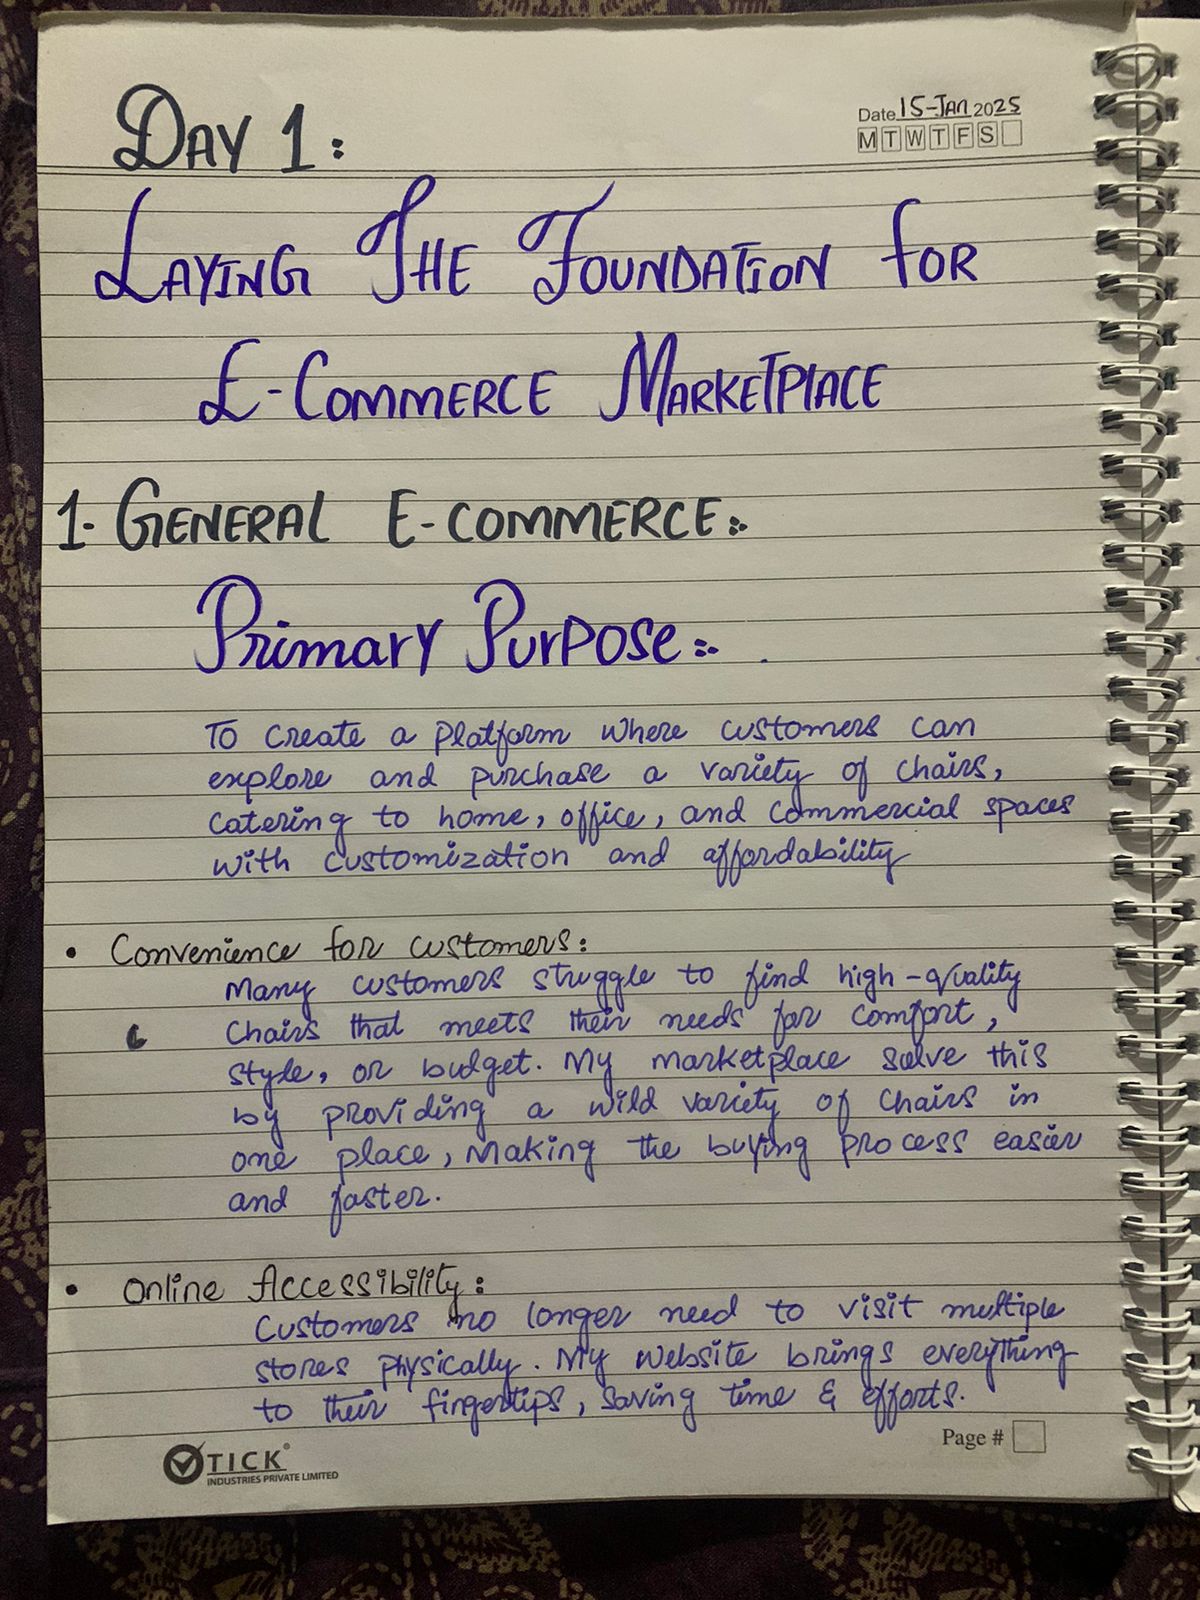 DAY 1:
Date 15-Jan 2025
M T W T F S
LAYING THE FOUNDATION FOR
E-COMMERCE MARKETPLACE
1- GENERAL E-COMMERCE:-
Primary Purpose:-
To create a platform where customers can
explore and purchase a variety of chairs,
catering to home, office, and commercial spaces
with customization and affordability
• Convenience for customers:
Many customers struggle to find high-quality
chairs that meets their needs for comfort,
style, or budget. My marketplace solve this
by providing a wild variety of chairs in
one place, making the buying process easier
and faster.
• Online Accessibility:
Customers no longer need to visit multiple
stores physically. My website brings everything
to their fingertips, saving time & efforts.
Page #
TICK®
INDUSTRIES PRIVATE LIMITED